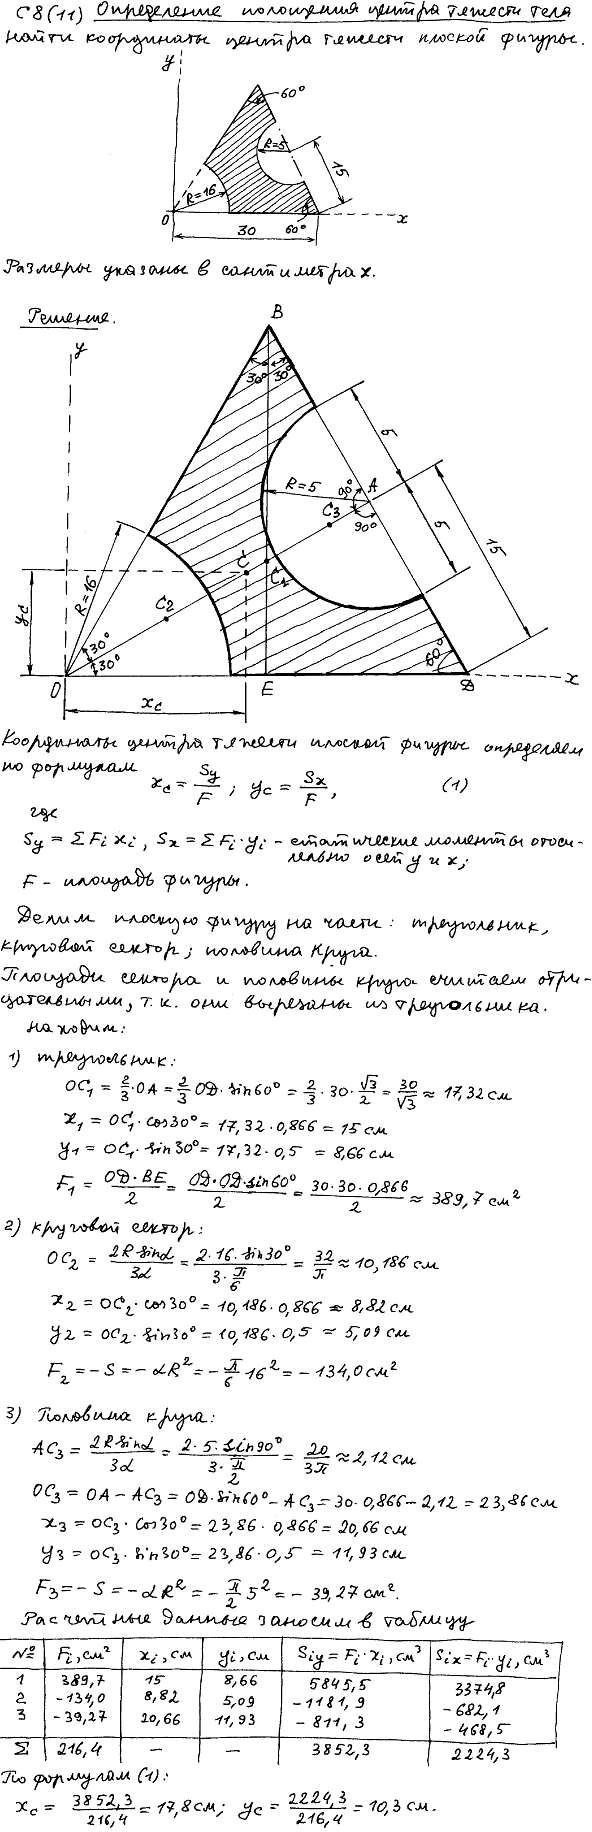 С8(11) Определение положения центра тяжести тела
Найти координаты центра тяжести плоской фигуры.
y
60°
R=5
15
R=16
O
60°
x
30
Размеры указаны в сантиметрах.
Решение.
B
y
30° 30°
5
R=5
90° A
C3
90°
5
15
C
C1
R=16
C2
yc
30°
30°
60°
O
E
D
x
xc
Координаты центра тяжести плоской фигуры определяем
по формулам
xc = Sy/F ; yc = Sx/F , (1)
где
Sy = ΣFi xi , Sx = ΣFi·yi – статические моменты относи-
тельно осей y и x;
F – площадь фигуры.
Делим плоскую фигуру на части: треугольник,
круговой сектор; половина круга.
Площади сектора и половины круга считаем отри-
цательными, т.к. они вырезаны из треугольника.
Находим:
1) треугольник:
OC1 = 2/3·OA = 2/3 OD·sin60° = 2/3·30·√3/2 = 30/√3 ≈ 17,32 см
x1 = OC1·cos30° = 17,32·0,866 = 15 см
y1 = OC1·sin30° = 17,32·0,5 = 8,66 см
F1 = OD·BE/2 = OD·OD·sin60°/2 = 30·30·0,866/2 ≈ 389,7 см²
2) круговой сектор:
OC2 = 2R sinα/3α = 2·16·sin30°/3·π/6 = 32/π ≈ 10,186 см
x2 = OC2·cos30° = 10,186·0,866 ≈ 8,82 см
y2 = OC2·sin30° = 10,186·0,5 ≈ 5,09 см
F2 = – S = – αR² = – π/6 16² = – 134,0 см²
3) Половина круга:
AC3 = 2R sinα/3α = 2·5·sin90°/3·π/2 = 20/3π ≈ 2,12 см
OC3 = OA – AC3 = OD·sin60° – AC3 = 30·0,866 – 2,12 = 23,86 см
x3 = OC3·cos30° = 23,86·0,866 = 20,66 см
y3 = OC3·sin30° = 23,86·0,5 = 11,93 см
F3 = – S = – αR² = – π/2 5² = – 39,27 см².
Расчетные данные заносим в таблицу
№ Fi, см² xi, см yi, см Siy = Fi·xi, см³ Six = Fi·yi, см³
1 389,7 15 8,66 5845,5 3374,8
2 –134,0 8,82 5,09 –1181,9 –682,1
3 –39,27 20,66 11,93 –811,3 –468,5
Σ 216,4 – – 3852,3 2224,3
По формулам (1):
xc = 3852,3/216,4 = 17,8 см; yc = 2224,3/216,4 = 10,3 см.